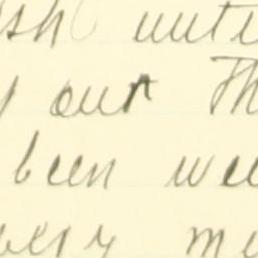 sh unti
our Th
been we
very m